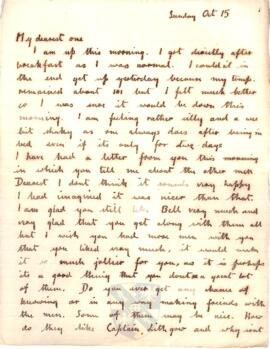 Sunday Oct 15
My dearest one
I am up this morning. I got directly after
breakfast as I was normal. I could it in
the end get up yesterday because my temp.
remained about 101 but I felt much better
so I was sure it would be down this
morning. I am feeling rather silly and a wee
bit shaky as one always does after being in
bed even if its only for five days
I have had a letter from you this morning
in which you tell me about the other men
Dearest I dont think it sounds very happy
I had imagined it was nicer than that
I am glad you still like Bell very much and
very glad that you get along with them all
but I wish you had more men with you
that you liked very much, it would make
it so much jollier for you, as it is perhaps
its a good thing that you dont see a great lot
of them. Do you ever get any chance of
knowing or in any way making friends with
the men. Some of them may be nice. How
do they like Captain Lithgow and why isnt